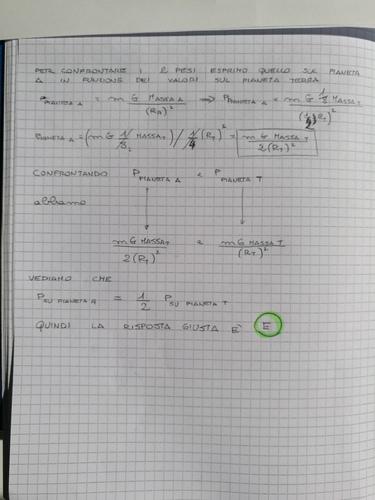 PER CONFRONTARE I 2 PESI ESPRIMO QUELLO SUL PIANETA
A IN FUNZIONE DEI VALORI SUL PIANETA TERRA
P PIANETA A = m G MASSA A / (R_A)² → P PIANETA A = m G 1/8 MASSA T / (1/2 R_T)²
P PIANETA A = (m G 1/8 MASSA T) / 1/4 (R_T)² = m G MASSA T / 2(R_T)²
CONFRONTANDO P PIANETA A e P PIANETA T
abbiamo
m G MASSA T / 2(R_T)² e m G MASSA T / (R_T)²
VEDIAMO CHE
P SU PIANETA A = 1/2 P SU PIANETA T
QUINDI LA RISPOSTA GIUSTA E' E